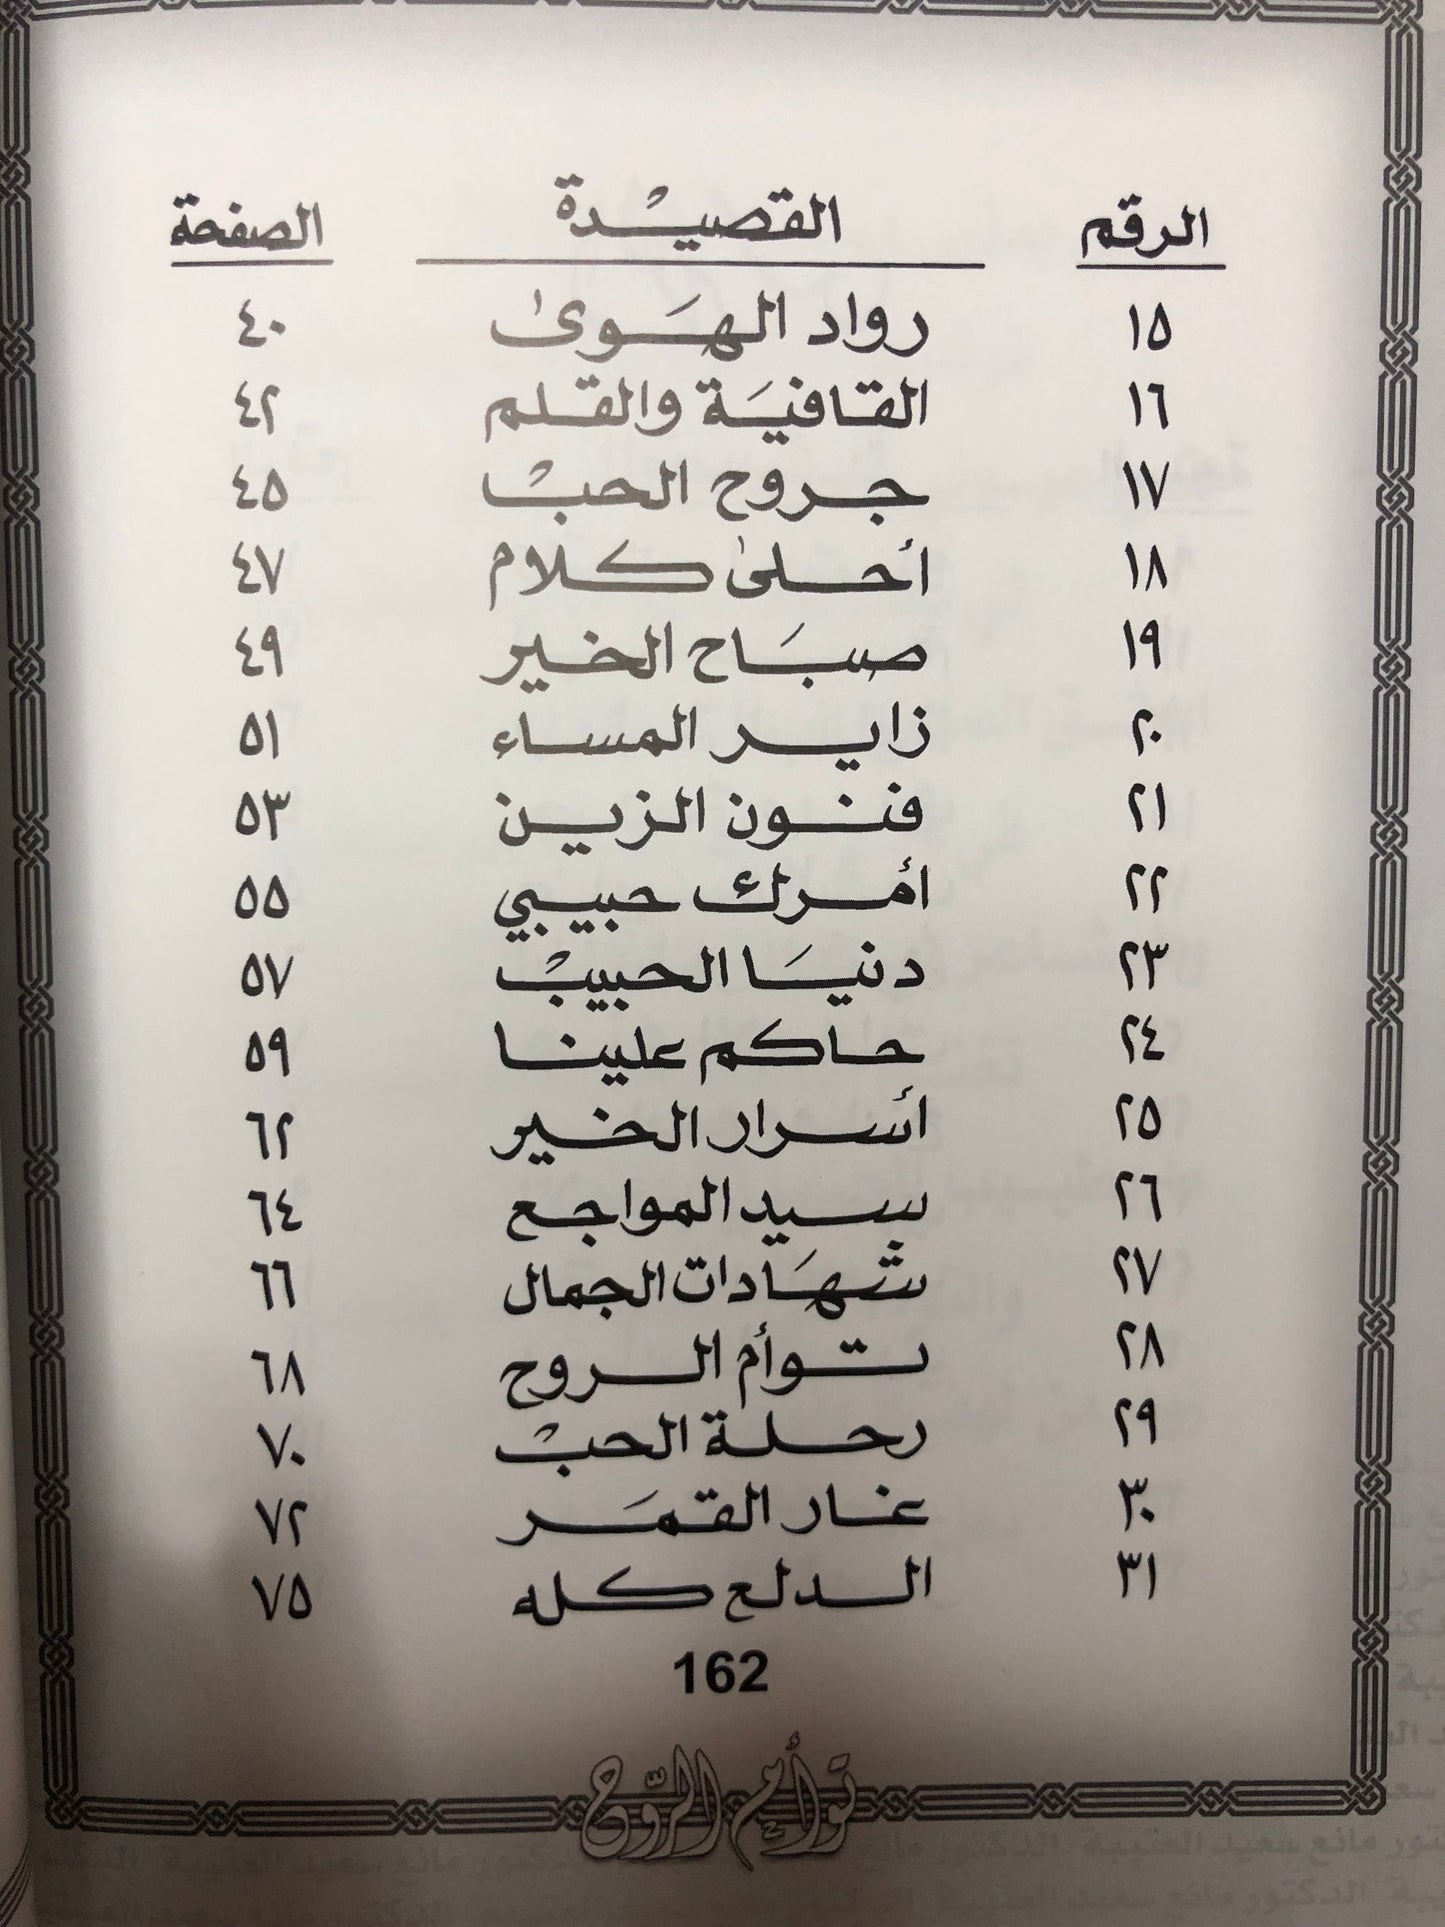 الرقم القصيدة الصفحة
١٥ رواد الهوى ٤٠
١٦ القافية والقلم ٤٢
١٧ جروح الحب ٤٥
١٨ أحلى كلام ٤٧
١٩ صباح الخير ٤٩
٢٠ زاير المساء ٥١
٢١ فنون الزين ٥٣
٢٢ أمرك حبيبي ٥٥
٢٣ دنيا الحبيب ٥٧
٢٤ حاكم علينا ٥٩
٢٥ أسرار الخير ٦٢
٢٦ سيد المواجع ٦٤
٢٧ شهادات الجمال ٦٦
٢٨ توأم الروح ٦٨
٢٩ رحلة الحب ٧٠
٣٠ غار القمر ٧٢
٣١ الدلع كله ٧٥
162
توأم الروح